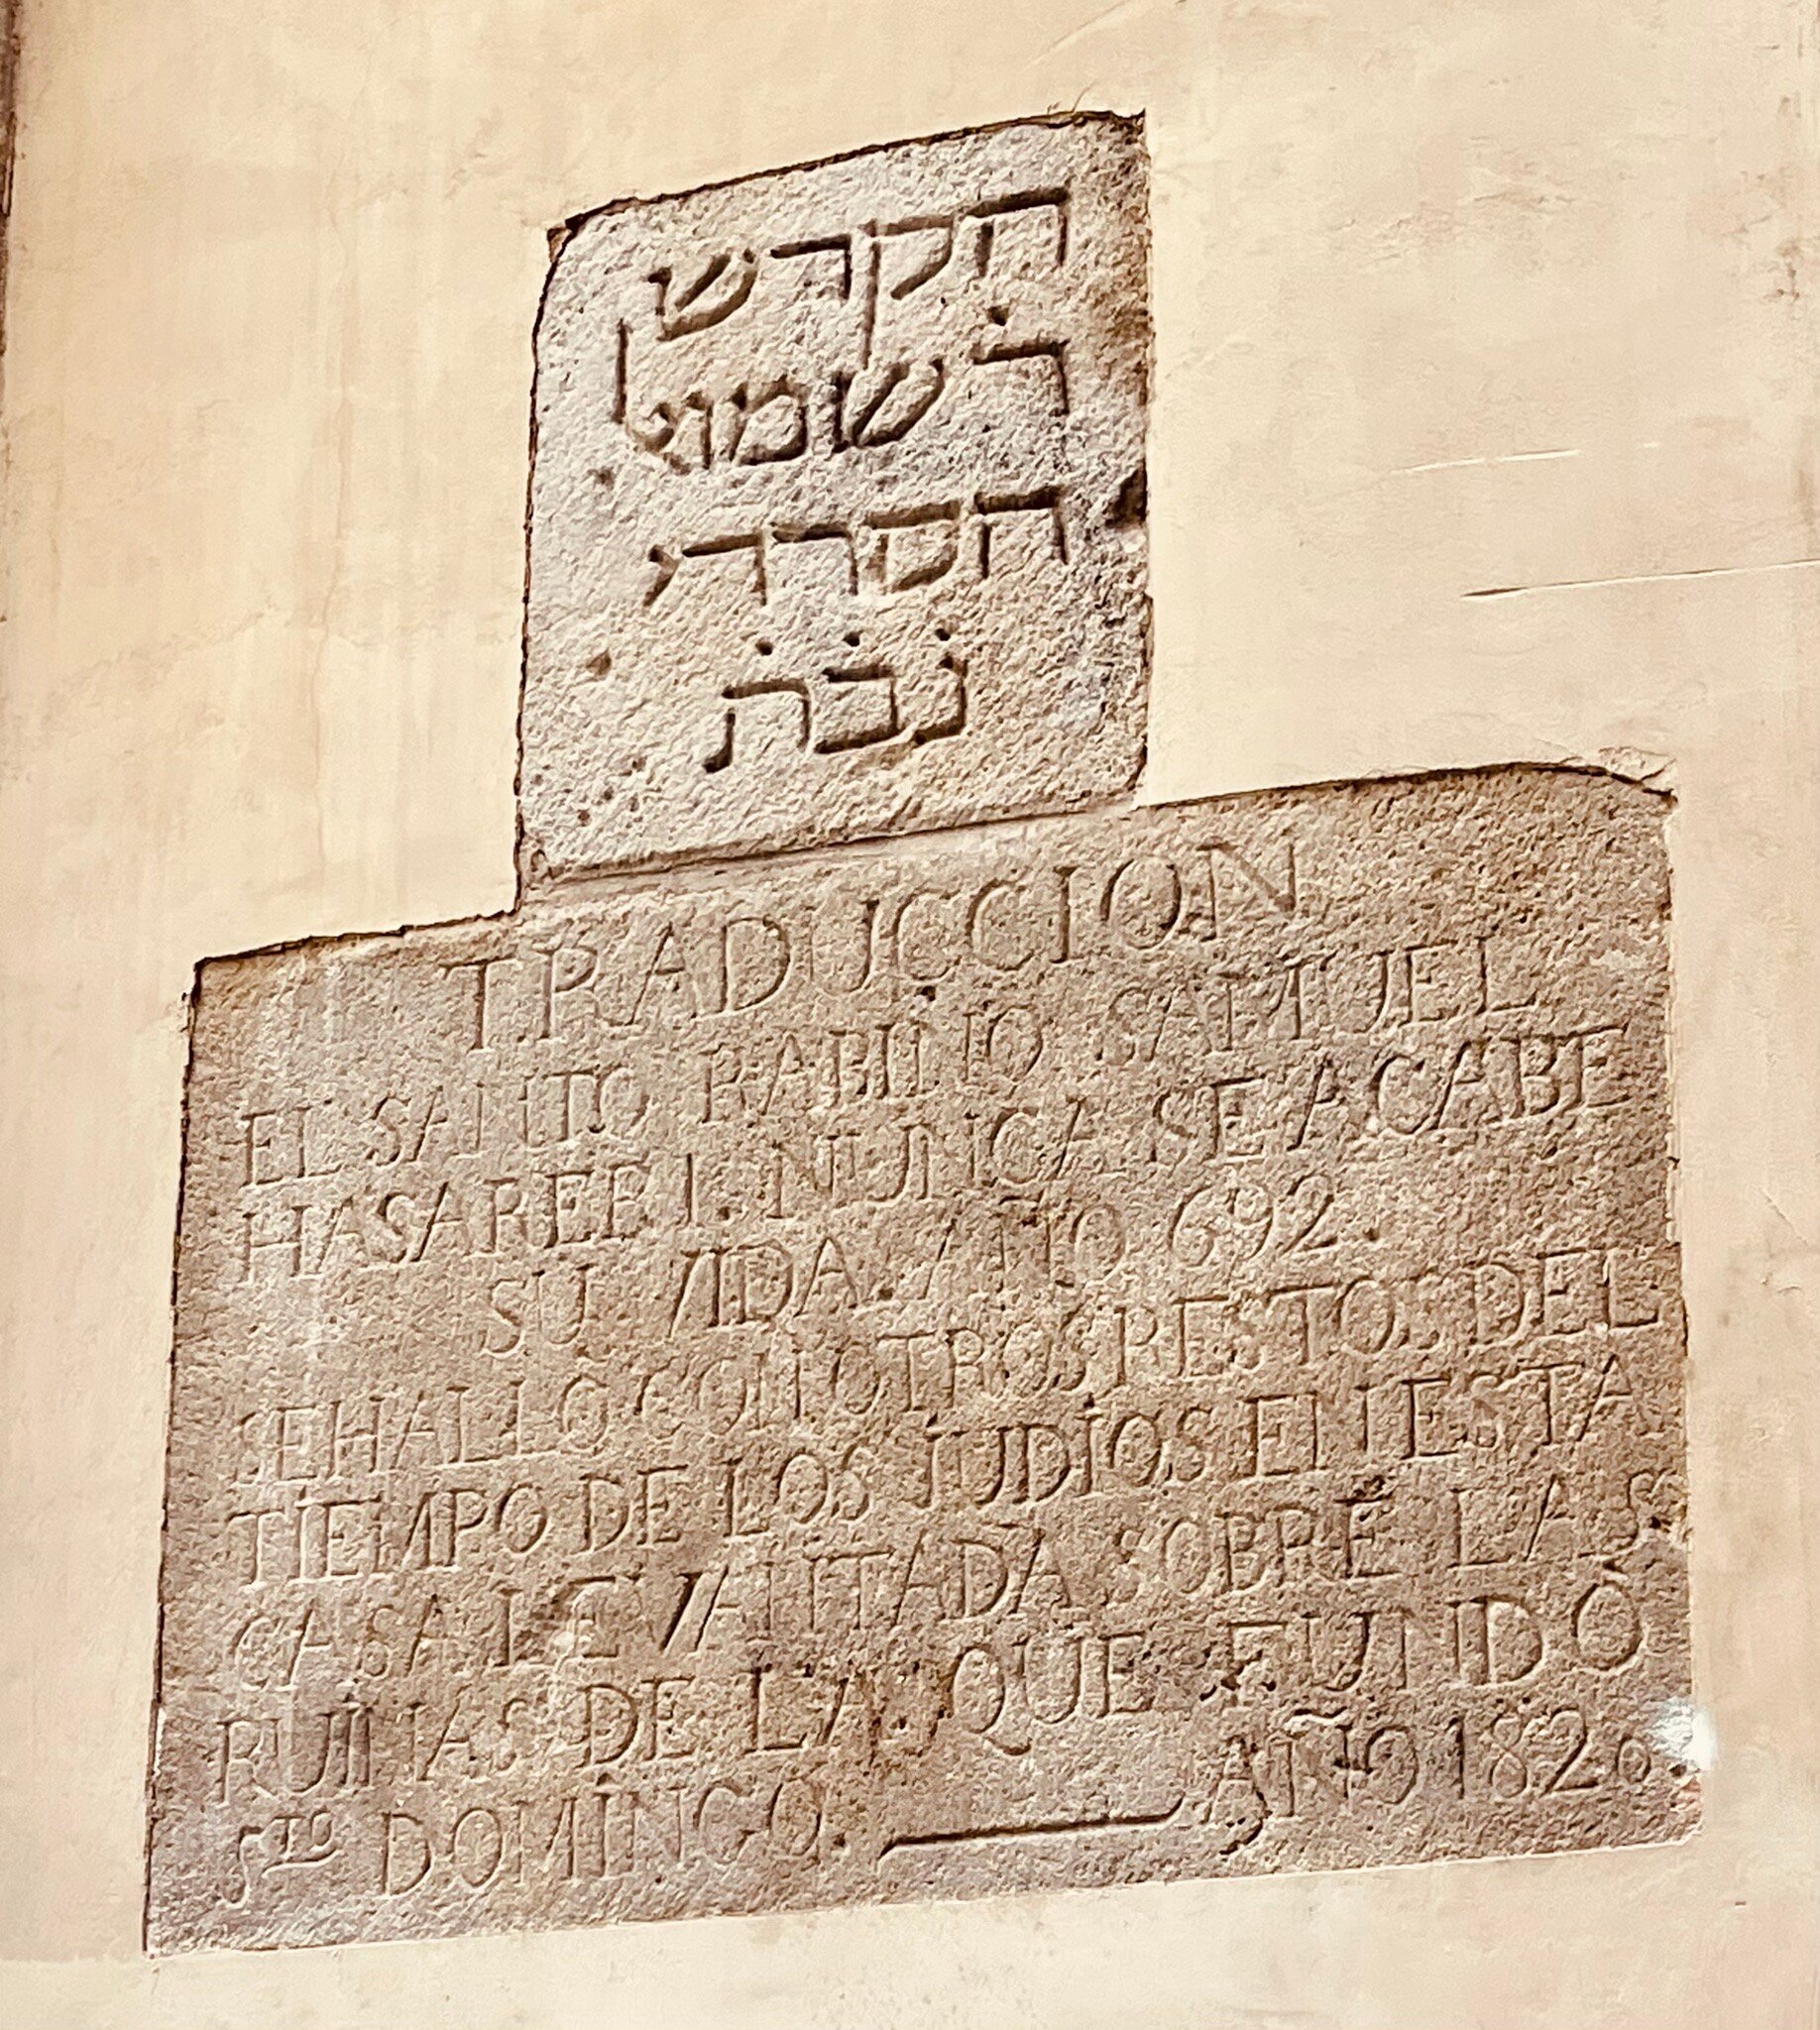 הקדש
ר̇ שמואל
הסרדי
נ̇ב̇ת̇
TRADUCCION
EL SANTO RABINO SAMUEL
HASARERI. NUNCA SE ACABE
SU VIDA. AÑO 692.
SE HALLO CON OTROS RESTOS DEL
TIEMPO DE LOS JUDIOS EN ESTA
CASA LEVANTADA SOBRE LAS
RUINAS DE LA QUE FUNDÓ
Sᵀᴼ DOMINGO. — AÑO 1820.